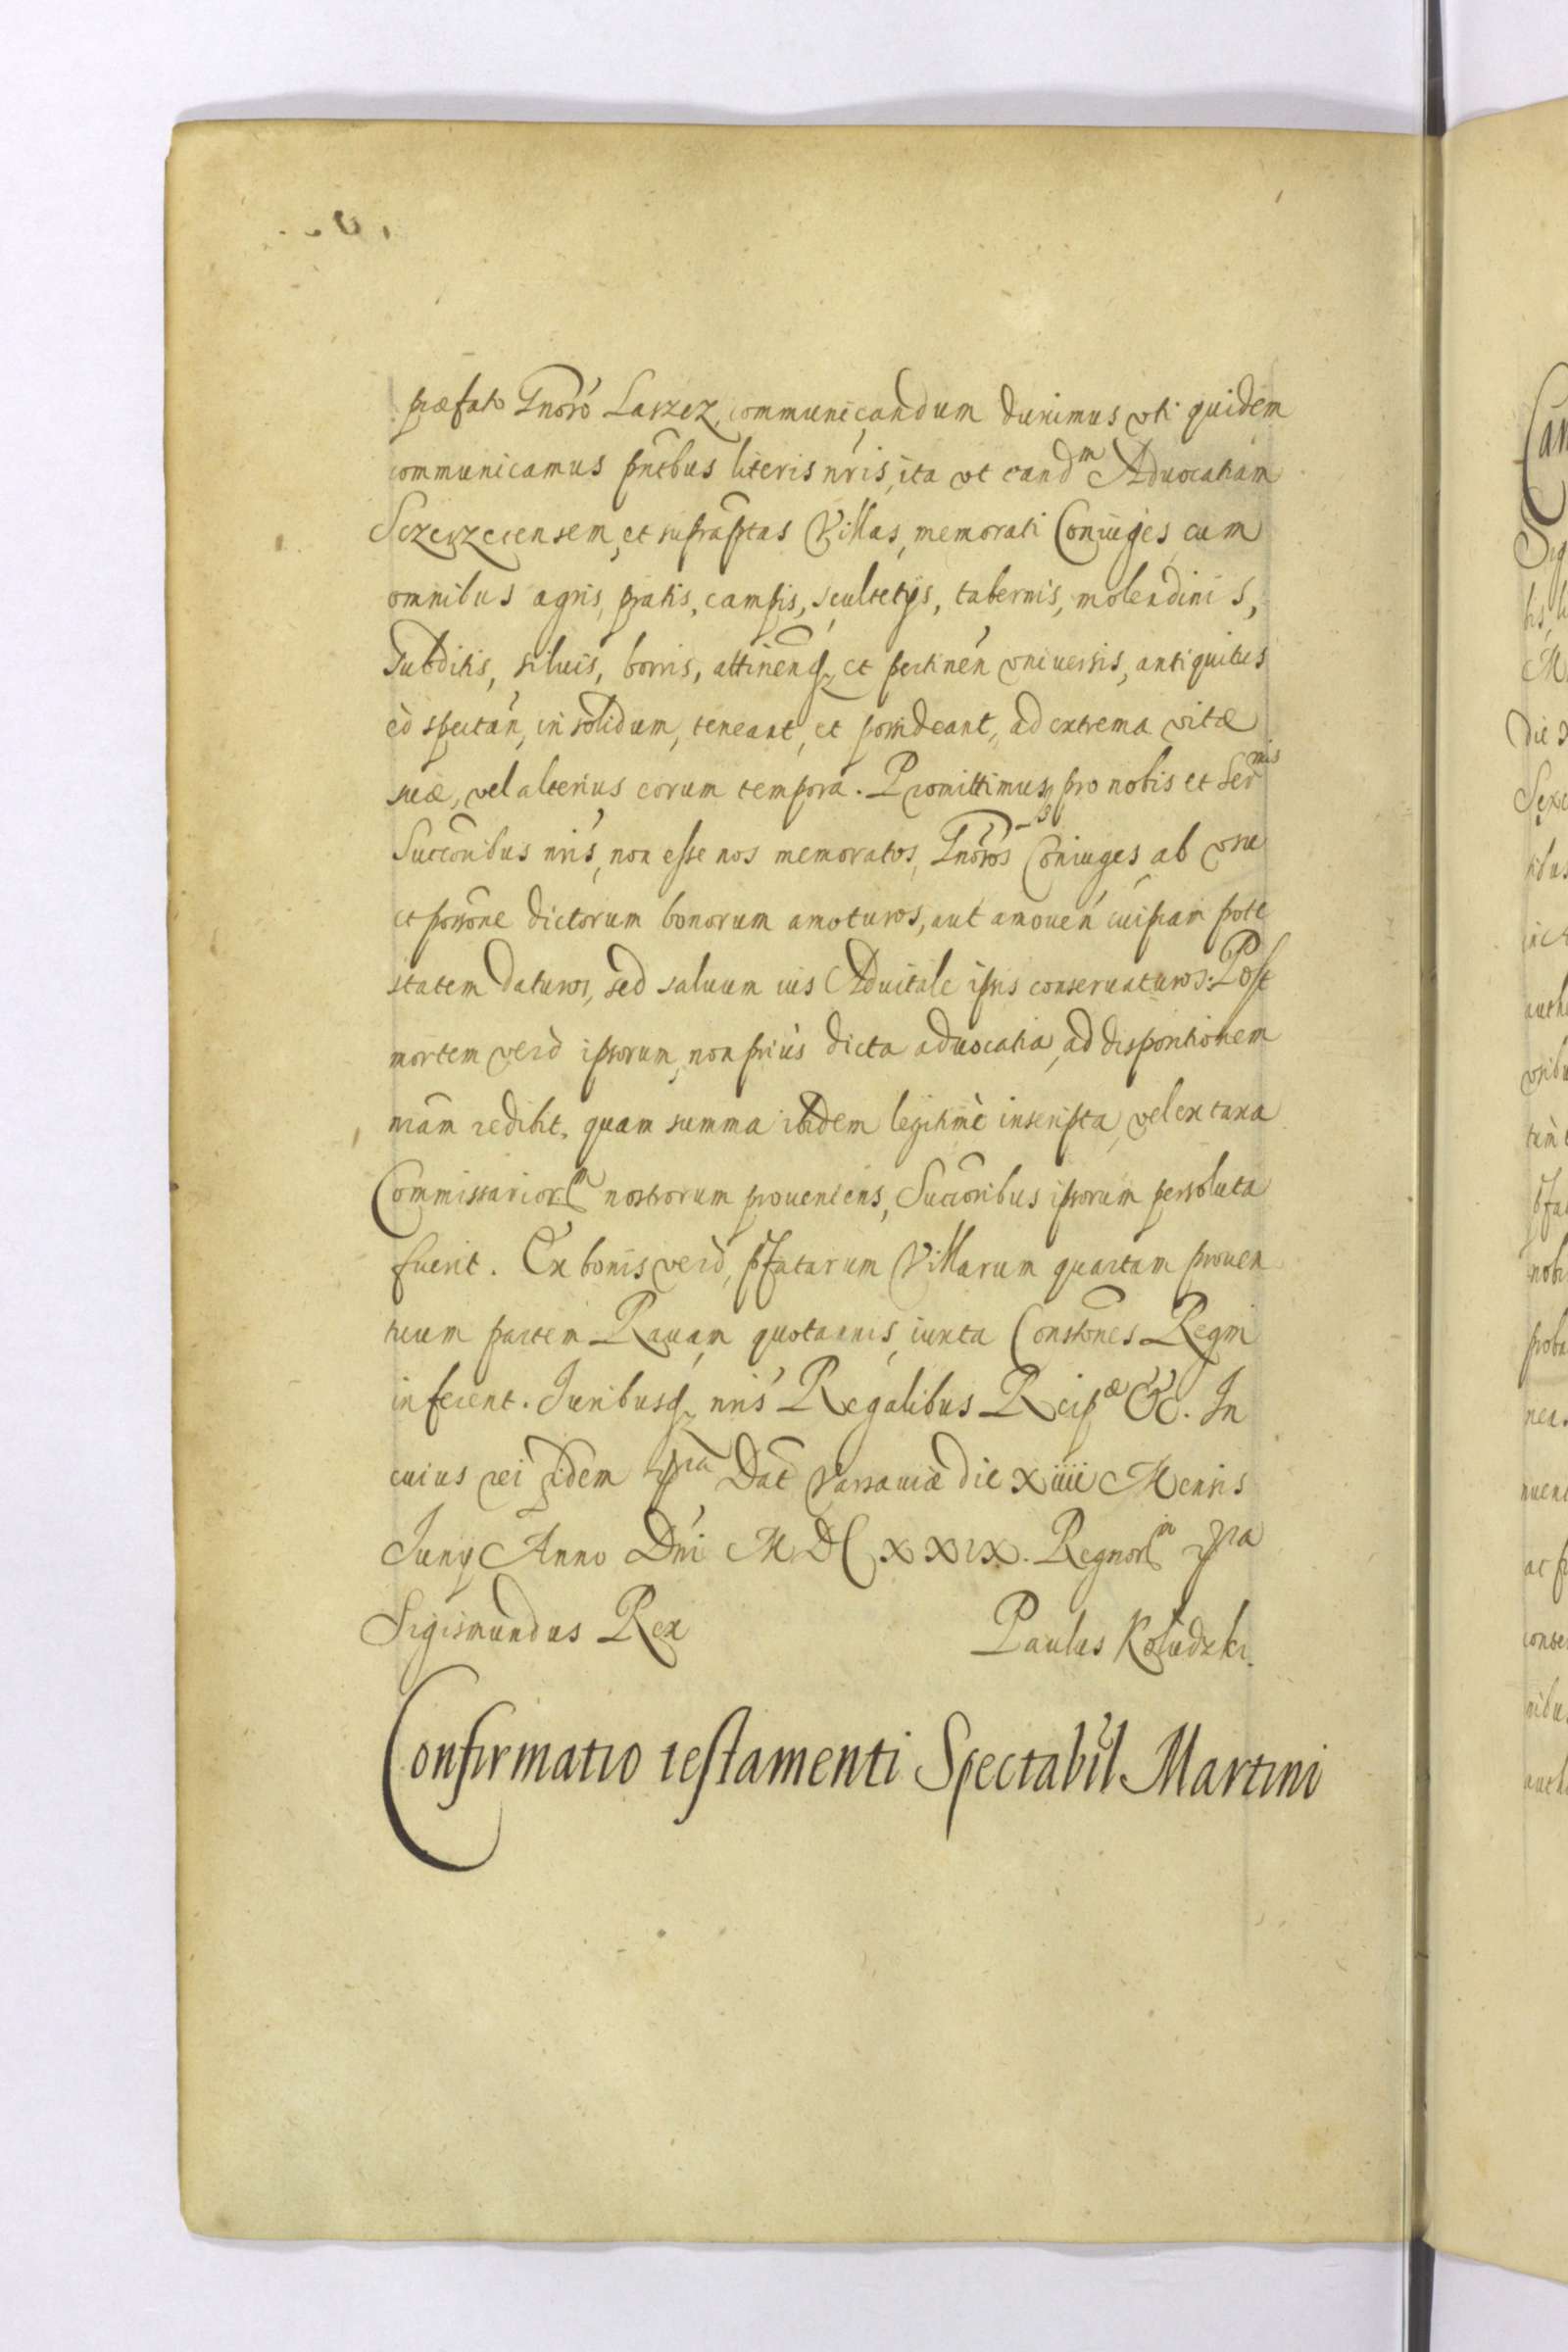 præfato Gnoso Laszcz communicandum duximus vti quidem
communicamus pñtibus literis nris, ita vt eand^m Aduocatiam
Sczerzecensem, et suprascptas Villas, memorati Coniuges cum
omnibus agris, pratis, campis, scultetys, tabernis, molendinis,
subditis, siluis, borris, attinenq; et pertinen vniuersis, antiquitus
eò spectan, in solidum, teneant, et possideant, ad extrema vitæ
suæ, vel alterius eorum tempora. Promittimusq; pro nobis et Ser^mis
Succoribus nris, non esse nos memoratos, Gnosos Coniuges, ab vsu
et possone dictorum bonorum amoturos, aut amouen cuipiam pote
statem daturos, sed saluum ius Aduitale ipsis conseruaturos: Post
mortem verò ipsorum, non priùs dicta aduocatia, ad dispositionem
nram redibit, quam summa ibidem legitimè inscripta, vel ex taxa
Commissarior^m nostrorum proueniens, Succoribus ipsorum persoluta
fuerit. Ex bonis verò, pfatarum Villarum quartam prouen
tuum partem Rauam quotannis, iuxta Constones Regni
inferent. Iuribusq; nris Regalibus Reip^æ &c. In
cuius rei fidem p^ria Dat Varsauiæ die XIIII Mensis
Iuny Anno Dni MDCXXIX. Regnor^m p^ria
Sigismundus Rex Paulus Kołudzki.
Confirmatio testamenti Spectabil Martini